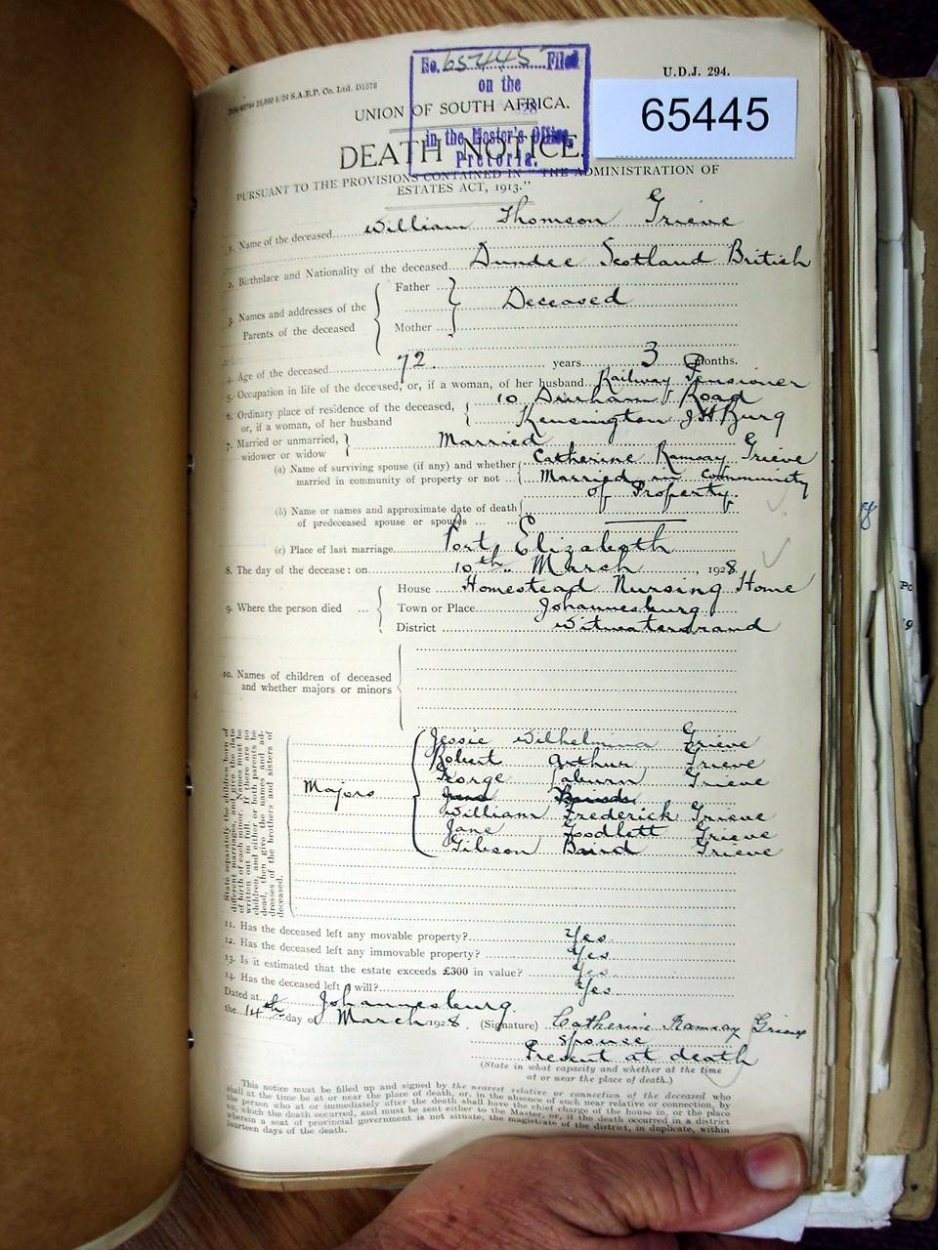 No. 65445 Filed
on the
in the Master's Office,
Pretoria.
U.D.J. 294.
65445
S.A.E.P. Co. Ltd. D1573
UNION OF SOUTH AFRICA.
DEATH NOTICE.
PURSUANT TO THE PROVISIONS CONTAINED IN "THE ADMINISTRATION OF
ESTATES ACT, 1913."
1. Name of the deceased William Thomson Grieve
2. Birthplace and Nationality of the deceased Dundee Scotland British
3. Names and addresses of the
Parents of the deceased
Father
Deceased
Mother
4. Age of the deceased 72 years 3 months.
5. Occupation in life of the deceased, or, if a woman, of her husband Railway Pensioner
6. Ordinary place of residence of the deceased,
or, if a woman, of her husband
10 Durham Road
Kensington JHBurg
7. Married or unmarried,
widower or widow
Married
(a) Name of surviving spouse (if any) and whether
married in community of property or not
Catherine Ramsay Grieve
Married in community
of Property.
(b) Name or names and approximate date of death
of predeceased spouse or spouses
(c) Place of last marriage Port Elizabeth
8. The day of the decease: on 10th March, 1928.
9. Where the person died
House Homestead Nursing Home
Town or Place Johannesburg
District Witwatersrand
10. Names of children of deceased
and whether majors or minors
State separately the children born of
different marriages, and give the date
of birth of each minor. Names must be
written out in full. If there are no
children, and either or both parents be
dead, then give the names and ad-
dresses of the brothers and sisters of
deceased.
Majors
Jessie Wilhelmina Grieve
Robert Arthur Grieve
George Grieve
William Frederick Grieve
Jane Grieve
Gibson Baird Grieve
11. Has the deceased left any movable property? Yes
12. Has the deceased left any immovable property? Yes
13. Is it estimated that the estate exceeds £300 in value? Yes
14. Has the deceased left a will? Yes
Dated at Johannesburg
the 14th day of March 1928. (Signature) Catherine Ramsay Grieve
Spouse
Present at death
(State in what capacity and whether at the time
of or near the place of death.)
This notice must be filled up and signed by the nearest relative or connection of the deceased who
shall at the time be at or near the place of death, or, in the absence of such near relative or connection, by
the person who at or immediately after the death shall have the chief charge of the house in, or the place
on, which the death occurred, and must be sent either to the Master, or, if the death occurred in a district
wherein a seat of provincial government is not situate, the magistrate of the district, in duplicate, within
fourteen days of the death.